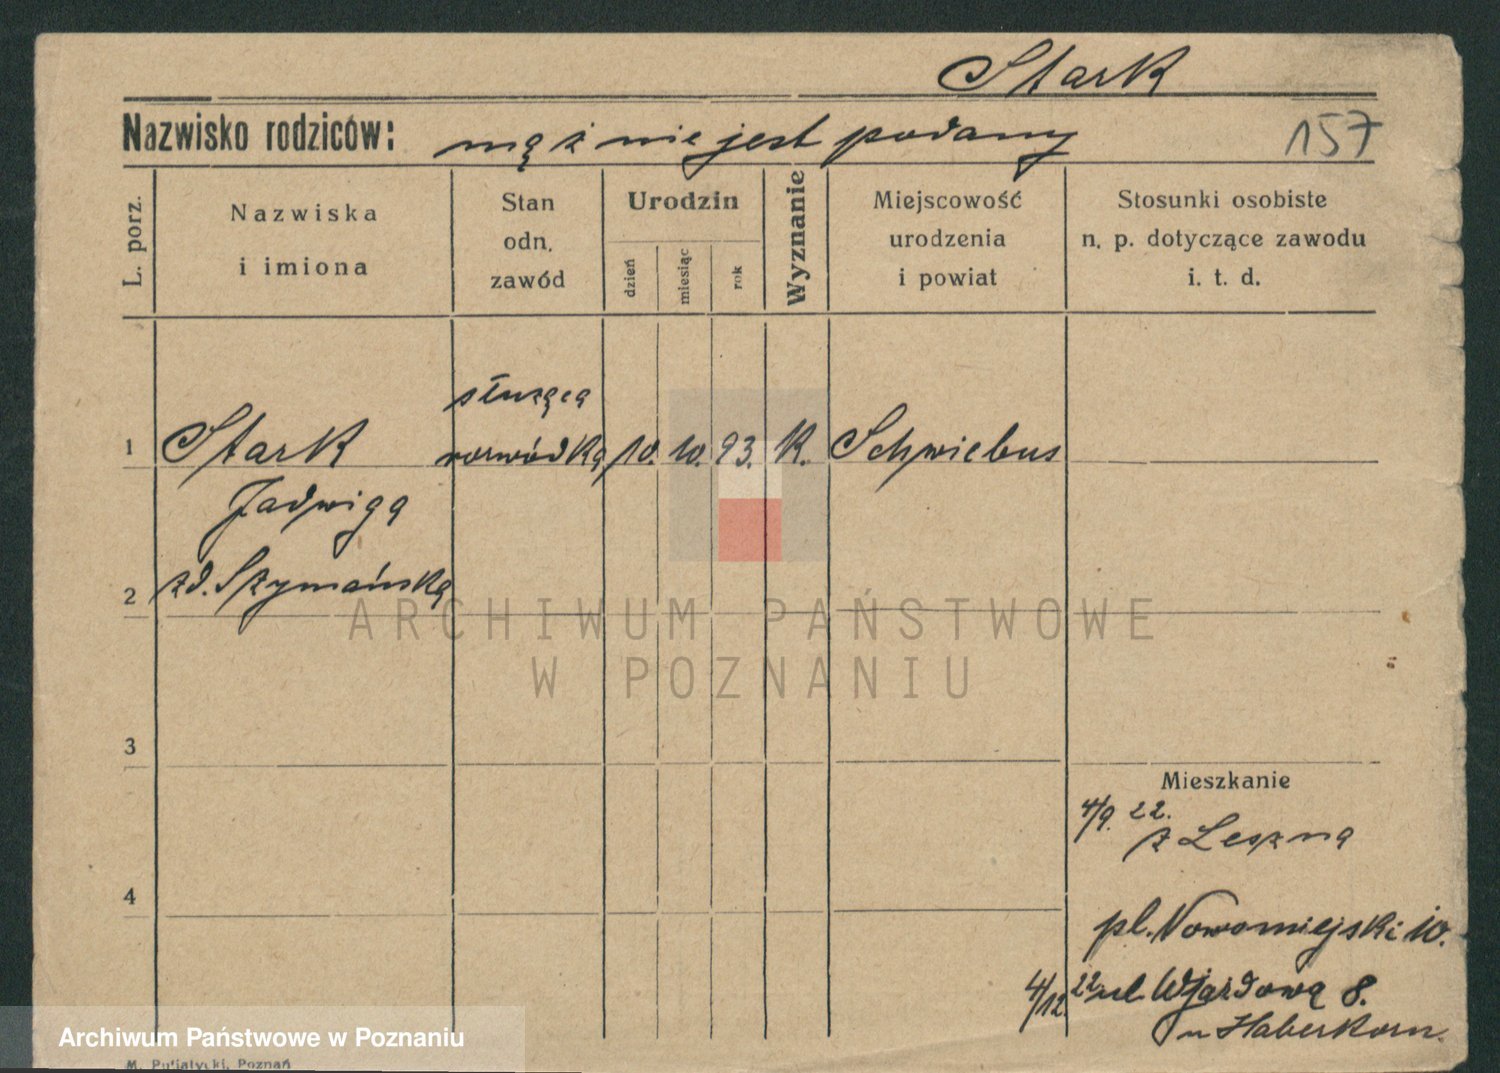 Stark
Nazwisko rodziców: mąż nie jest podany
157
L. porz.
Nazwiska
i imiona
Stan
odn.
zawód
Urodzin
dzień
miesiąc
rok
Wyznanie
Miejscowość
urodzenia
i powiat
Stosunki osobiste
n. p. dotyczące zawodu
i. t. d.
służąca
1 Stark rozwódka 10. 10. 93. K. Schwiebus
Jadwiga
2 zd. Szymańska
ARCHIWUM PAŃSTWOWE
W POZNANIU
3
Mieszkanie
4/9. 22.
z Leszna
4
pl. Nowomiejski 10.
4/12. 22 ul. Wjazdowa 8.
u Haberkorn.
Archiwum Państwowe w Poznaniu
M. Putiatycki, Poznań